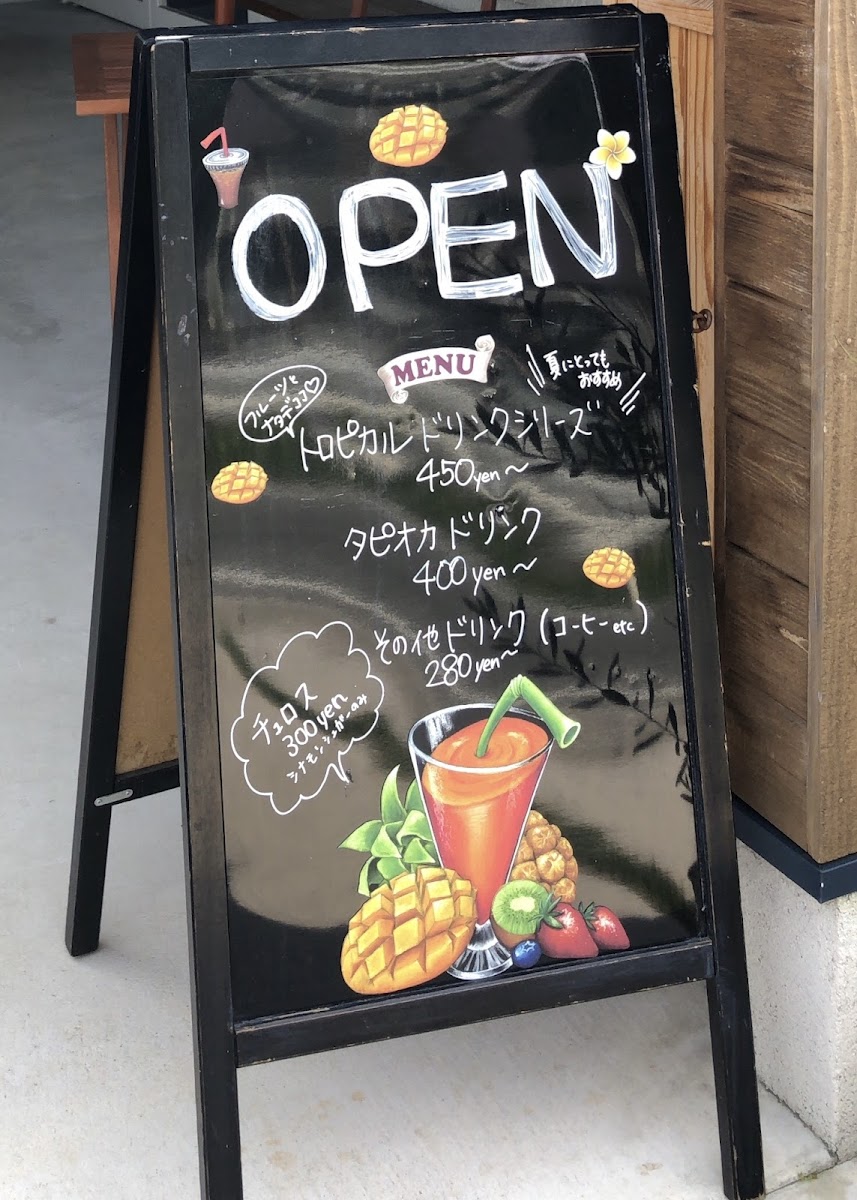 OPEN
MENU
夏にとっても
おすすめ
フルーツと
ナタデココ♡
トロピカルドリンクシリーズ
450yen～
タピオカドリンク
400yen～
その他ドリンク(コーヒーetc)
280yen～
チュロス
300yen
シナモンシュガーのみ